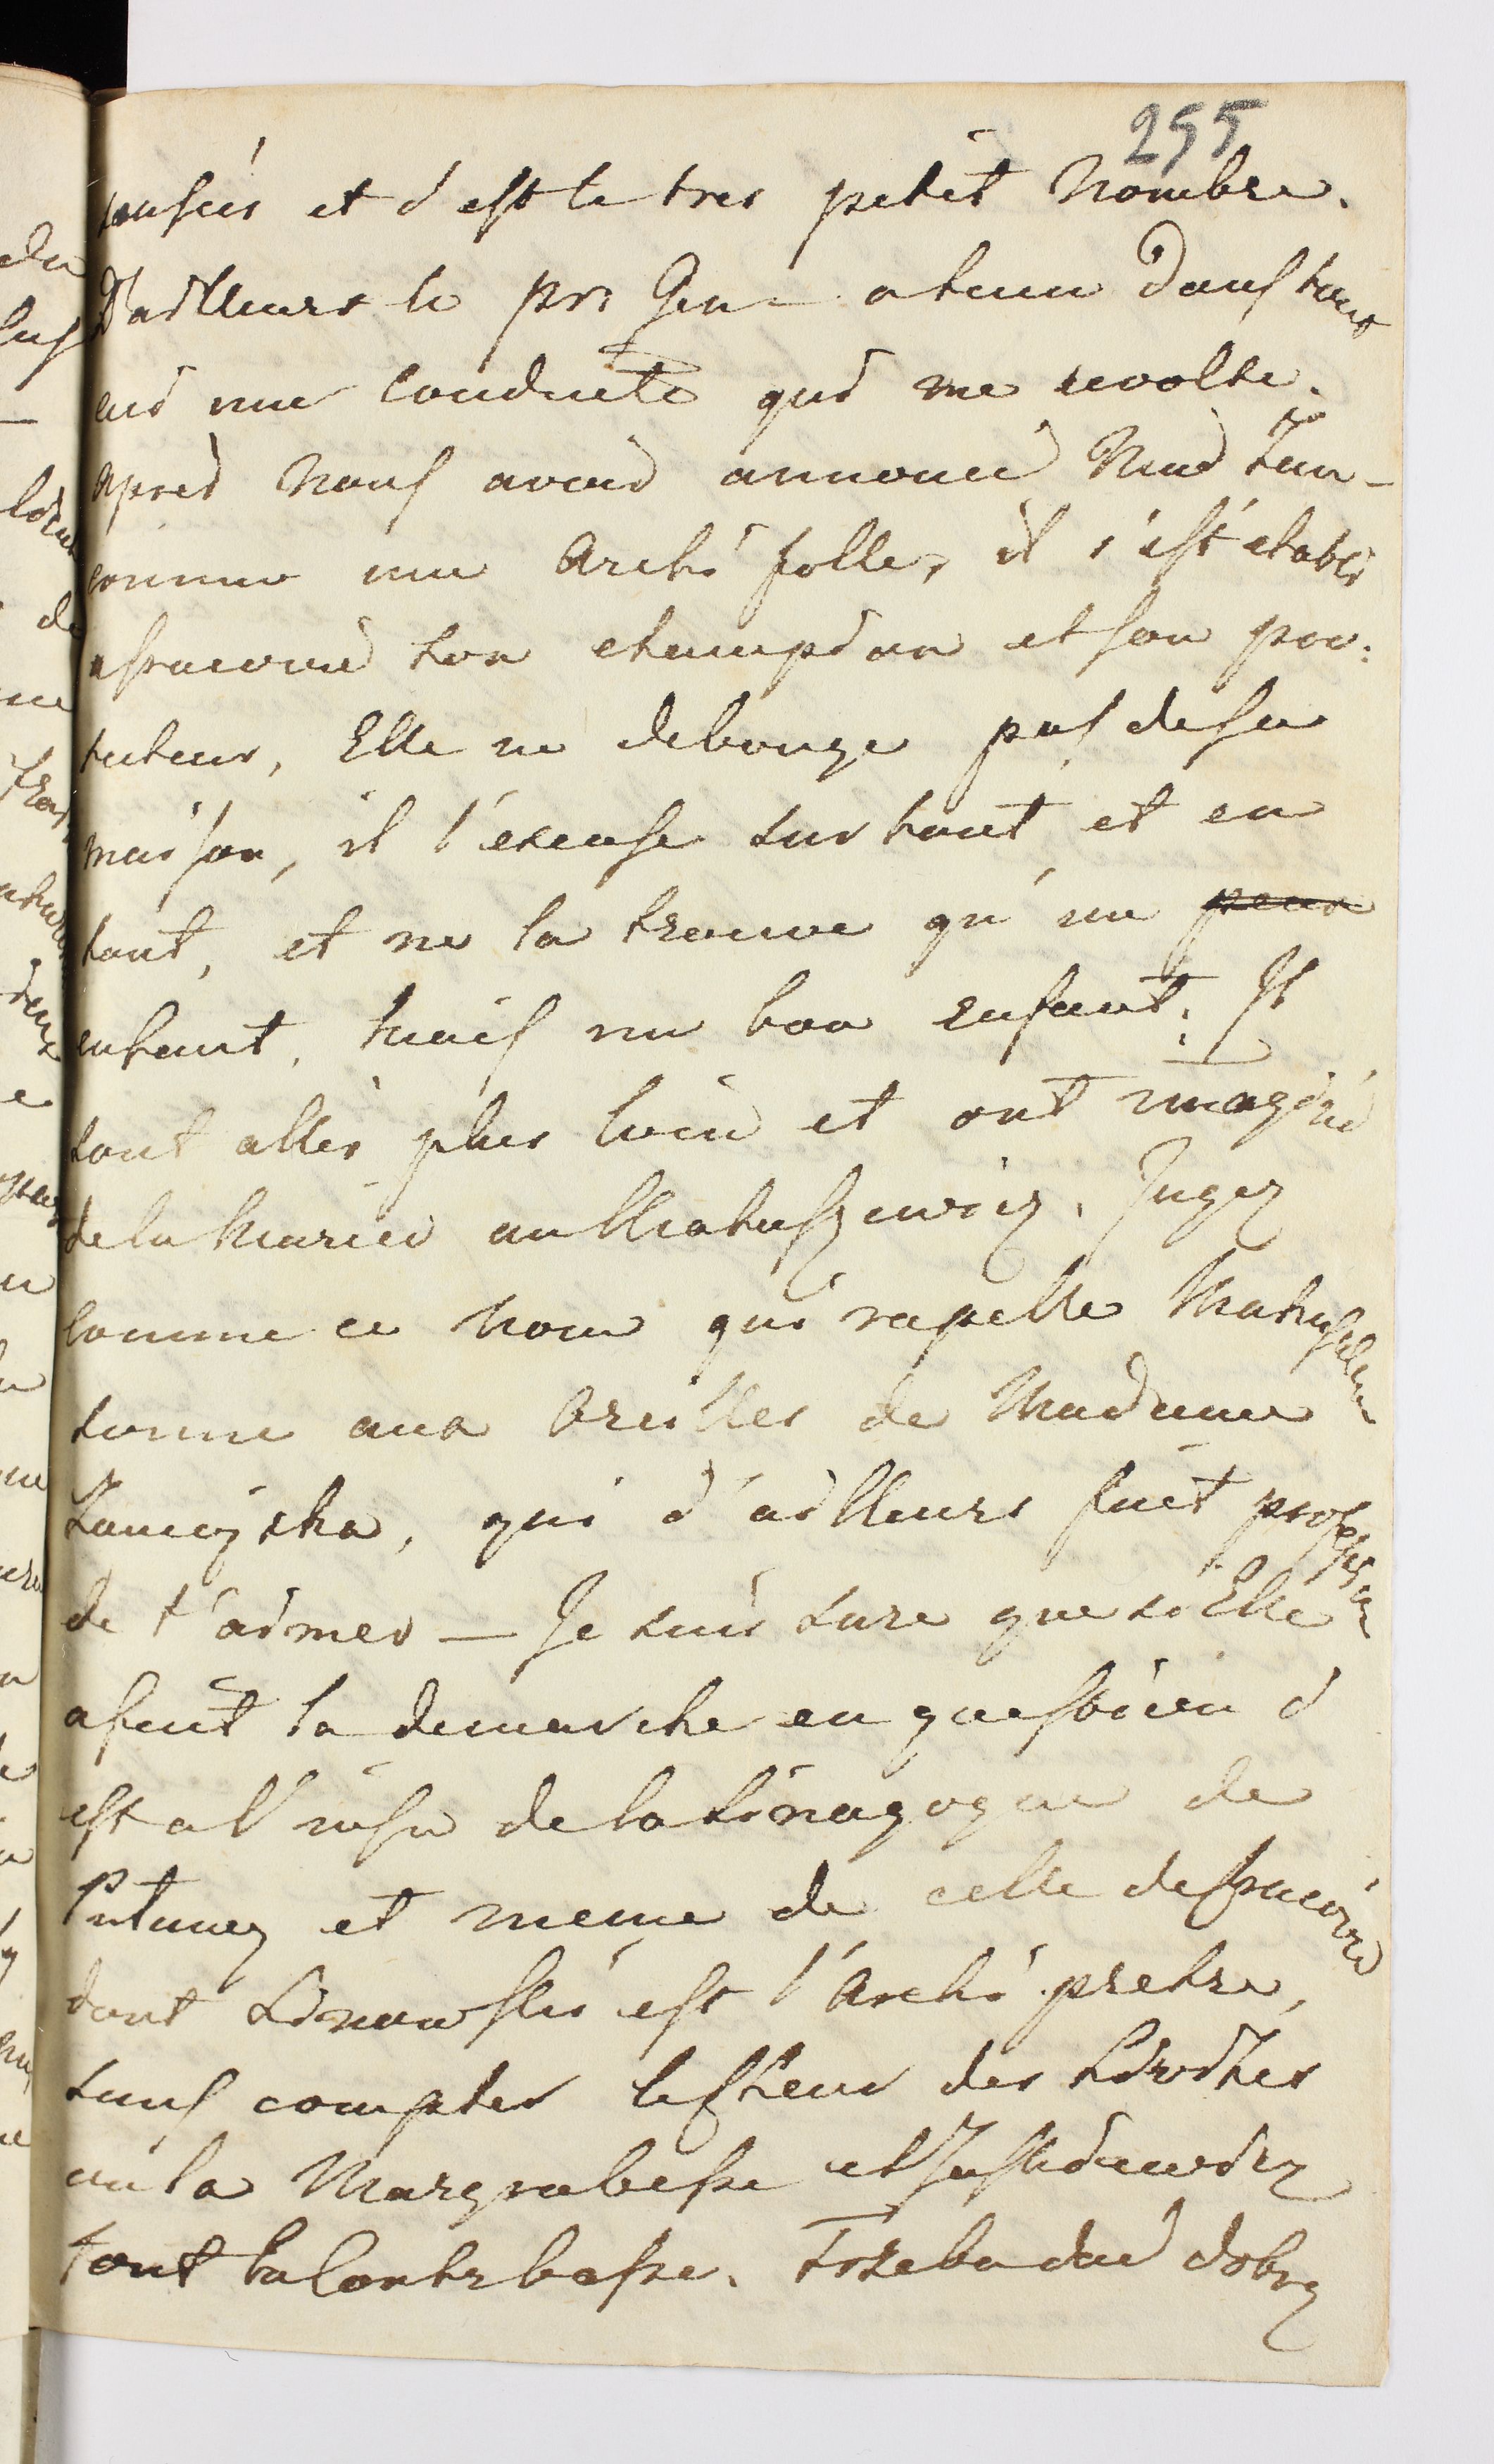 255
sensés et c'est le tres petit Nombre.
D'ailleurs le pri Gen - a tenu dans tout
ceci une conduite qui me revolte.
après nous avoir annoncé Mad Zam-
comme une Archi folle, il s'est etabli
son champion et son pro:
tecteur, Elle ne debouge pas de sa
maison, il l'excuse sur tout et en
tout, et ne la trouve qu'un peu
enfant, mais un bon enfant. Il
sont allés plus loin et ont imaginé
de la marier au Matuszewicz. Jugez
comme ce nom qui rapelle Mathusalem
sonne aux oreilles de Madame
Zamojska, qui d'ailleurs fait profession
de t'aimer — Je suis sure que si Elle
a fait la demarche en question c
est a l'insu de la Sinagogue de
Pulawy et meme de celle de
dont Linowski est l'Archi pretre,
sans compter le des
où la Margrabesse et
font la Contrebasse. Trzeba dać dobry